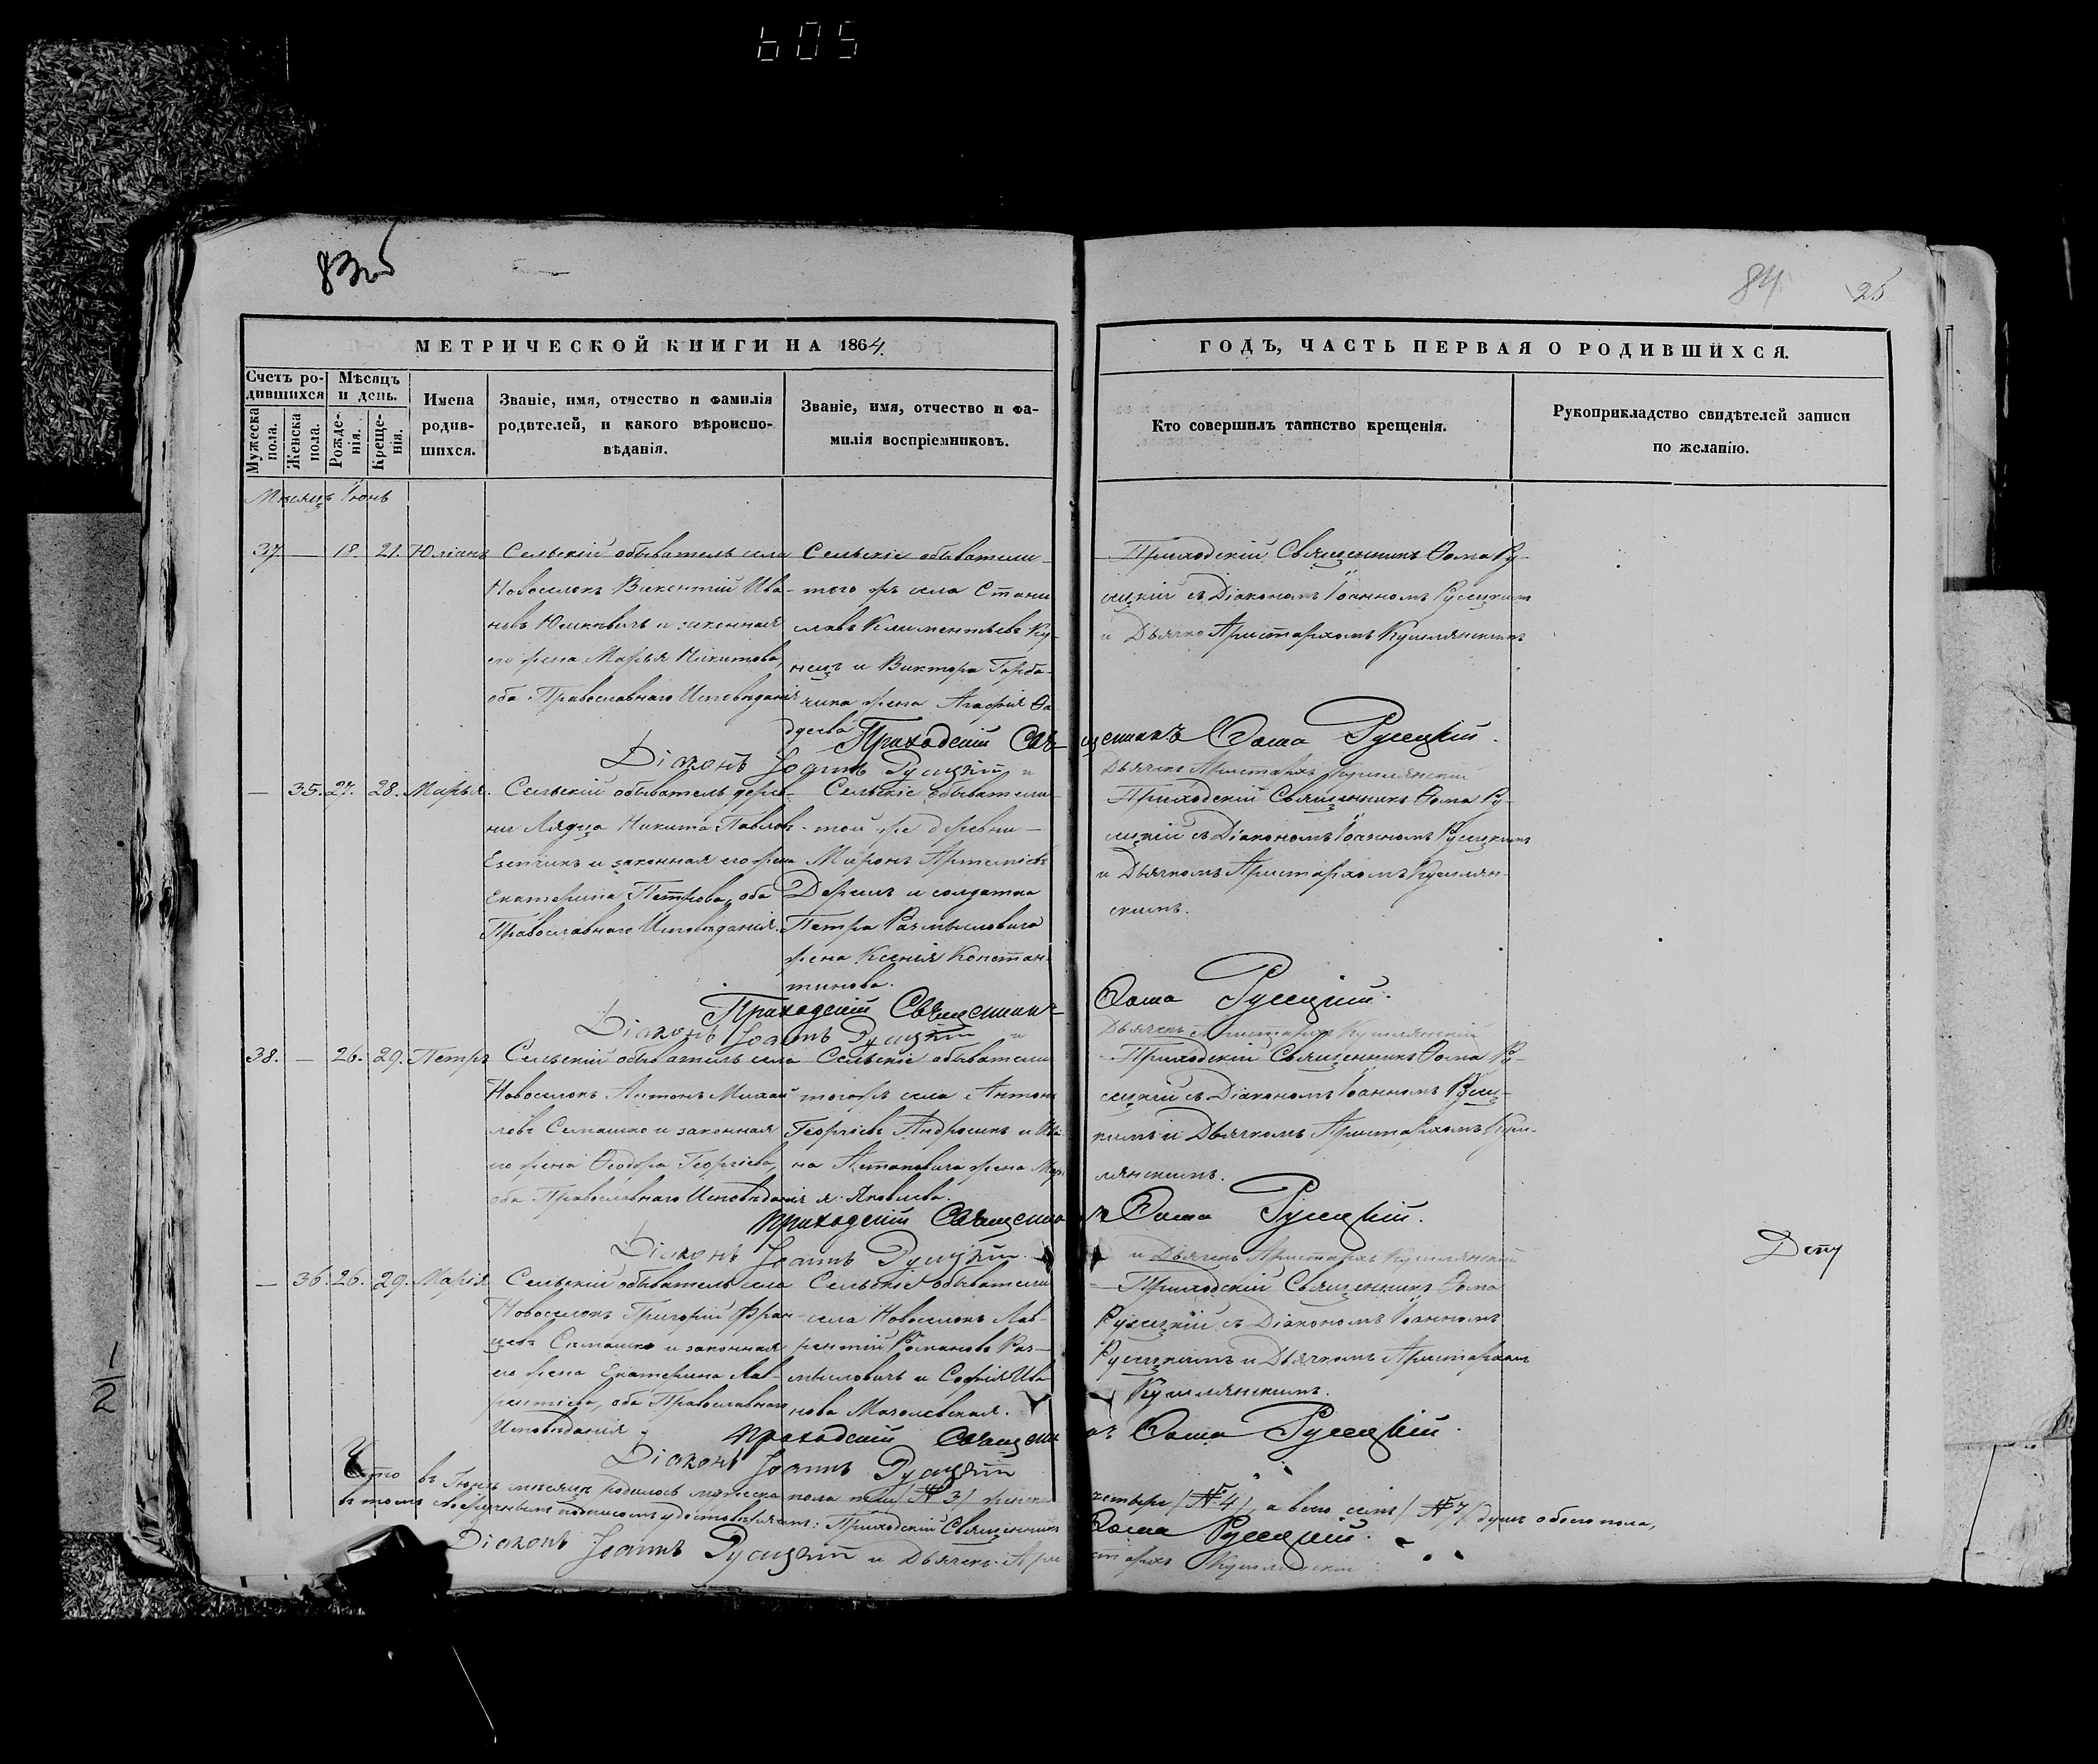 605
83об
84
25
МЕТРИЧЕСКОЙ КНИГИ НА 1864.
ГОДЪ, ЧАСТЬ ПЕРВАЯ О РОДИВШИХСЯ.
Счетъ ро-
дившихся
Мѣсяцъ
и день.
Мужеска
пола.
Женска
пола.
Рожде-
нія.
Креще-
нія.
Имена
родив-
шихся.
Званіе, имя, отчество и фамилія
родителей, и какого вѣроиспо-
вѣданія.
Званіе, имя, отчество и фа-
милія воспріемниковъ.
Кто совершилъ таинство крещенія.
Рукоприкладство свидѣтелей записи
по желанію.
Мѣсяцъ Іюнь
37. — 18. 21. Юліанъ
Сельскій обыватель села
Новоселокъ Викентій Ива-
новъ и законная
его жена Марья Никитова,
оба Православнаго Исповѣданія
Сельскіе обыватели
того жъ села Стани
славъ Климентьевъ Ку-
нецъ и Виктора Горба-
чика жена Агафія Ѳа
дѣева
Приходскій Священникъ Ѳома Ру-
сецкій съ Діакономъ Іоанномъ Русецкимъ
и Дьячко Аристархомъ Кушлянскимъ
Приходскій Священникъ Ѳома Русецкій.
Діаконъ Іоаннъ Русецкій и
Дьячекъ Аристархъ Кушлянскій
— 35. 27. 28. Марья.
Сельскій обыватель дерев-
ни Лядца Никита Павловъ
и законная его жена
Екатерина Петрова, оба
Православнаго Исповѣданія.
Сельскіе обыватели
той же деревни —
Миронъ Артеміевъ
и солдатка
Петра Размысловича
жена Ксенія Констан-
тинова.
Приходскій Священникъ Ѳома Ру-
сецкій съ Діакономъ Іоанномъ Русецкимъ
и Дьячкомъ Аристархомъ Кушлян-
скимъ.
Приходскій Священникъ Ѳома Русецкій.
Діаконъ Іоаннъ Русецкій и
Дьячекъ Аристархъ Кушлянскій
38. — 26. 29. Петръ
Сельскій обыватель села
Новоселокъ Антонъ Михай
ловъ Семашко и законная
его жена Ѳеодора Георгіева,
оба Православнаго Исповѣданія
Сельскіе обыватели
того жъ села Антонъ
Георгіевъ Андросикъ и Ива
на жена Мар
я Яковлева.
Приходскій Священникъ Ѳома Ру-
сецкій съ Діакономъ Іоанномъ Русец-
кимъ и Дьячкомъ Аристархомъ Куш-
лянскимъ.
Приходскій Священникъ Ѳома Русецкій.
Діаконъ Іоаннъ Русецкій.
и Дьячекъ Аристархъ Кушлянскій
Депу
— 36. 26. 29. Марія
Сельскій обыватель села
Новоселокъ Григорій Фран-
цевъ Семашко и законная
его жена Екатерина Лав-
рентіева, оба Православнаго
Исповѣданія
Сельскіе обыватели
села Новоселокъ Лав-
рентій Романовъ Раз-
мысловичъ и Софія Ива
нова
Приходскій Священникъ Ѳома
Русецкій съ Діакономъ Іоанномъ
Русецкимъ и Дьячкомъ Аристархомъ
Кушлянскимъ.
Приходскій Священникъ Ѳома Русецкій.
Діаконъ Іоаннъ Русецкій
Что въ Іюнѣ мѣсяцѣ родилось мужеска пола три /№ 3/ женска четыре /№ 4/, а всего семь /№ 7/ душъ обоего пола,
въ томъ подписомъ удостовѣряемъ: Приходскій Священникъ Ѳома Русецкій.
Діаконъ Іоаннъ Русецкій и Дьячекъ Аристархъ Кушлянскій
1/2